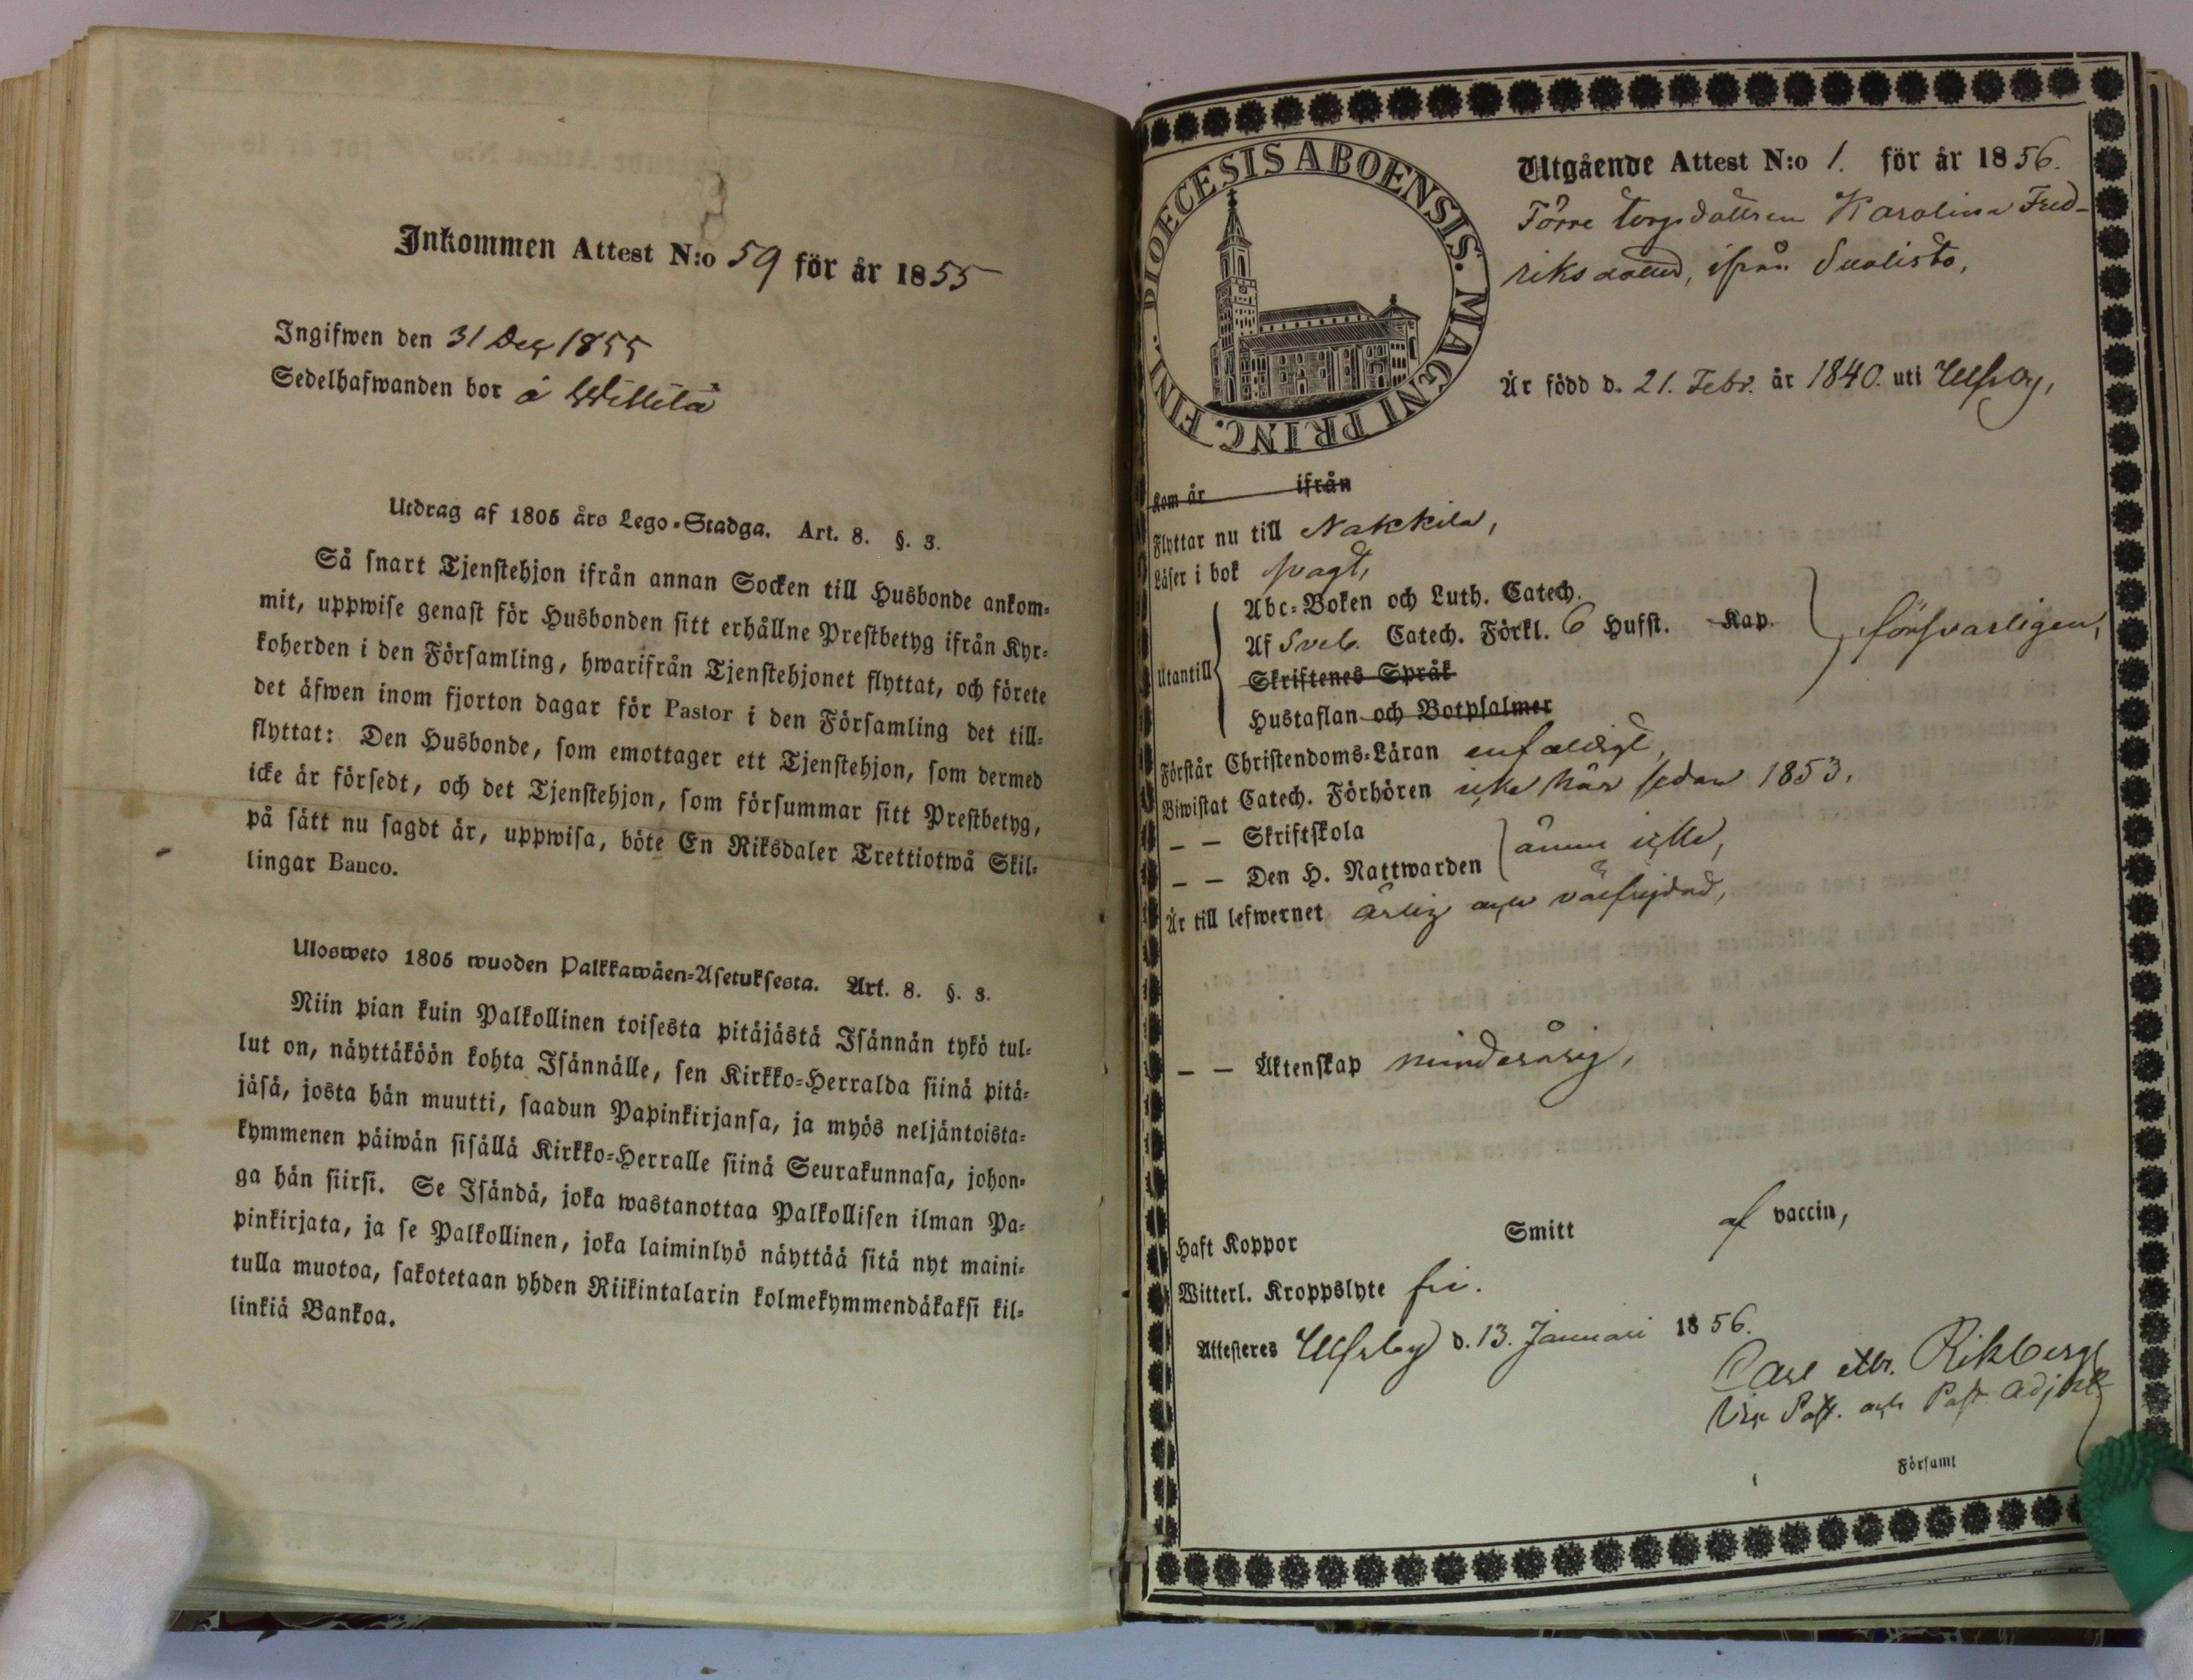 Inkommen Attest N:o 59 för år 1855
Ingifwen den 31 Dec 1855
Sedelhafwanden bor å Willilä
Utdrag af 1805 års Lego-Stadga. Art. 8. §. 3.
Så snart Tjenstehjon ifrån annan Socken till Husbonde ankom-
mit, uppwise genast för Husbonden sitt erhållne Prestbetyg ifrån Kyr-
koherden i den Församling, hwarifrån Tjenstehjonet flyttat, och förete
det äfwen inom fjorton dagar för Pastor i den Församling det till-
flyttat: Den Husbonde, som emottager ett Tjenstehjon, som dermed
icke är försedt, och det Tjenstehjon, som försummar sitt Prestbetyg,
på sätt nu sagdt är, uppwisa, böte En Riksdaler Trettiotwå Skil-
lingar Banco.
Ulosweto 1805 wuoden Palkkawäen-Asetuksesta. Art. 8. §. 3.
Niin pian kuin Palkollinen toisesta pitäjästä Isännän tykö tul-
lut on, näyttäköön kohta Isännälle, sen Kirkko-Herralda siinä pitä-
jäsä, josta hän muutti, saadun Papinkirjansa, ja myös neljäntoista-
kymmenen päiwän sisällä Kirkko-Herralle siinä Seurakunnasa, johon-
ga hän siirsi. Se Isändä, joka wastanottaa Palkollisen ilman Pa-
pinkirjata, ja se Palkollinen, joka laiminlyö näyttää sitä nyt maini-
tulla muotoa, sakotetaan yhden Riikintalarin kolmekymmendäkaksi kil-
linkiä Bankoa.
DIOECESIS ABOENSIS. MAGNI PRINC. FINL.
Utgående Attest N:o 1. för år 1856.
Förre torpdottren Karolina Fred-
riksdotter, ifrån Suolisto,
Är född d. 21. Febr. år 1840. uti Ulfsby,
Kom år ifrån
Flyttar nu till Nakkila,
Läser i bok svagt,
Utantill
Abc-Boken och Luth. Catech.
Af Sveb. Catech. Förkl. 6 Hufst. Kap.
Skriftenes Språk
Hustaflan och Botpsalmer
försvarligen,
Förstår Christendoms-Läran enfaldigt,
Biwistat Catech. Förhören icke här sedan 1853.
— — Skriftskola
— — Den H. Nattwarden
ännu icke,
Är till lefwernet ärlig och välfrejdad,
— — Äktenskap minderårig,
Haft Koppor Smitt af vaccin,
Witterl. Kroppslyte fri.
Attesteras Ulfsby d. 13. Januari 1856.
Carl Rikberg
Vice Past. och Past. Adjkt
i Församl